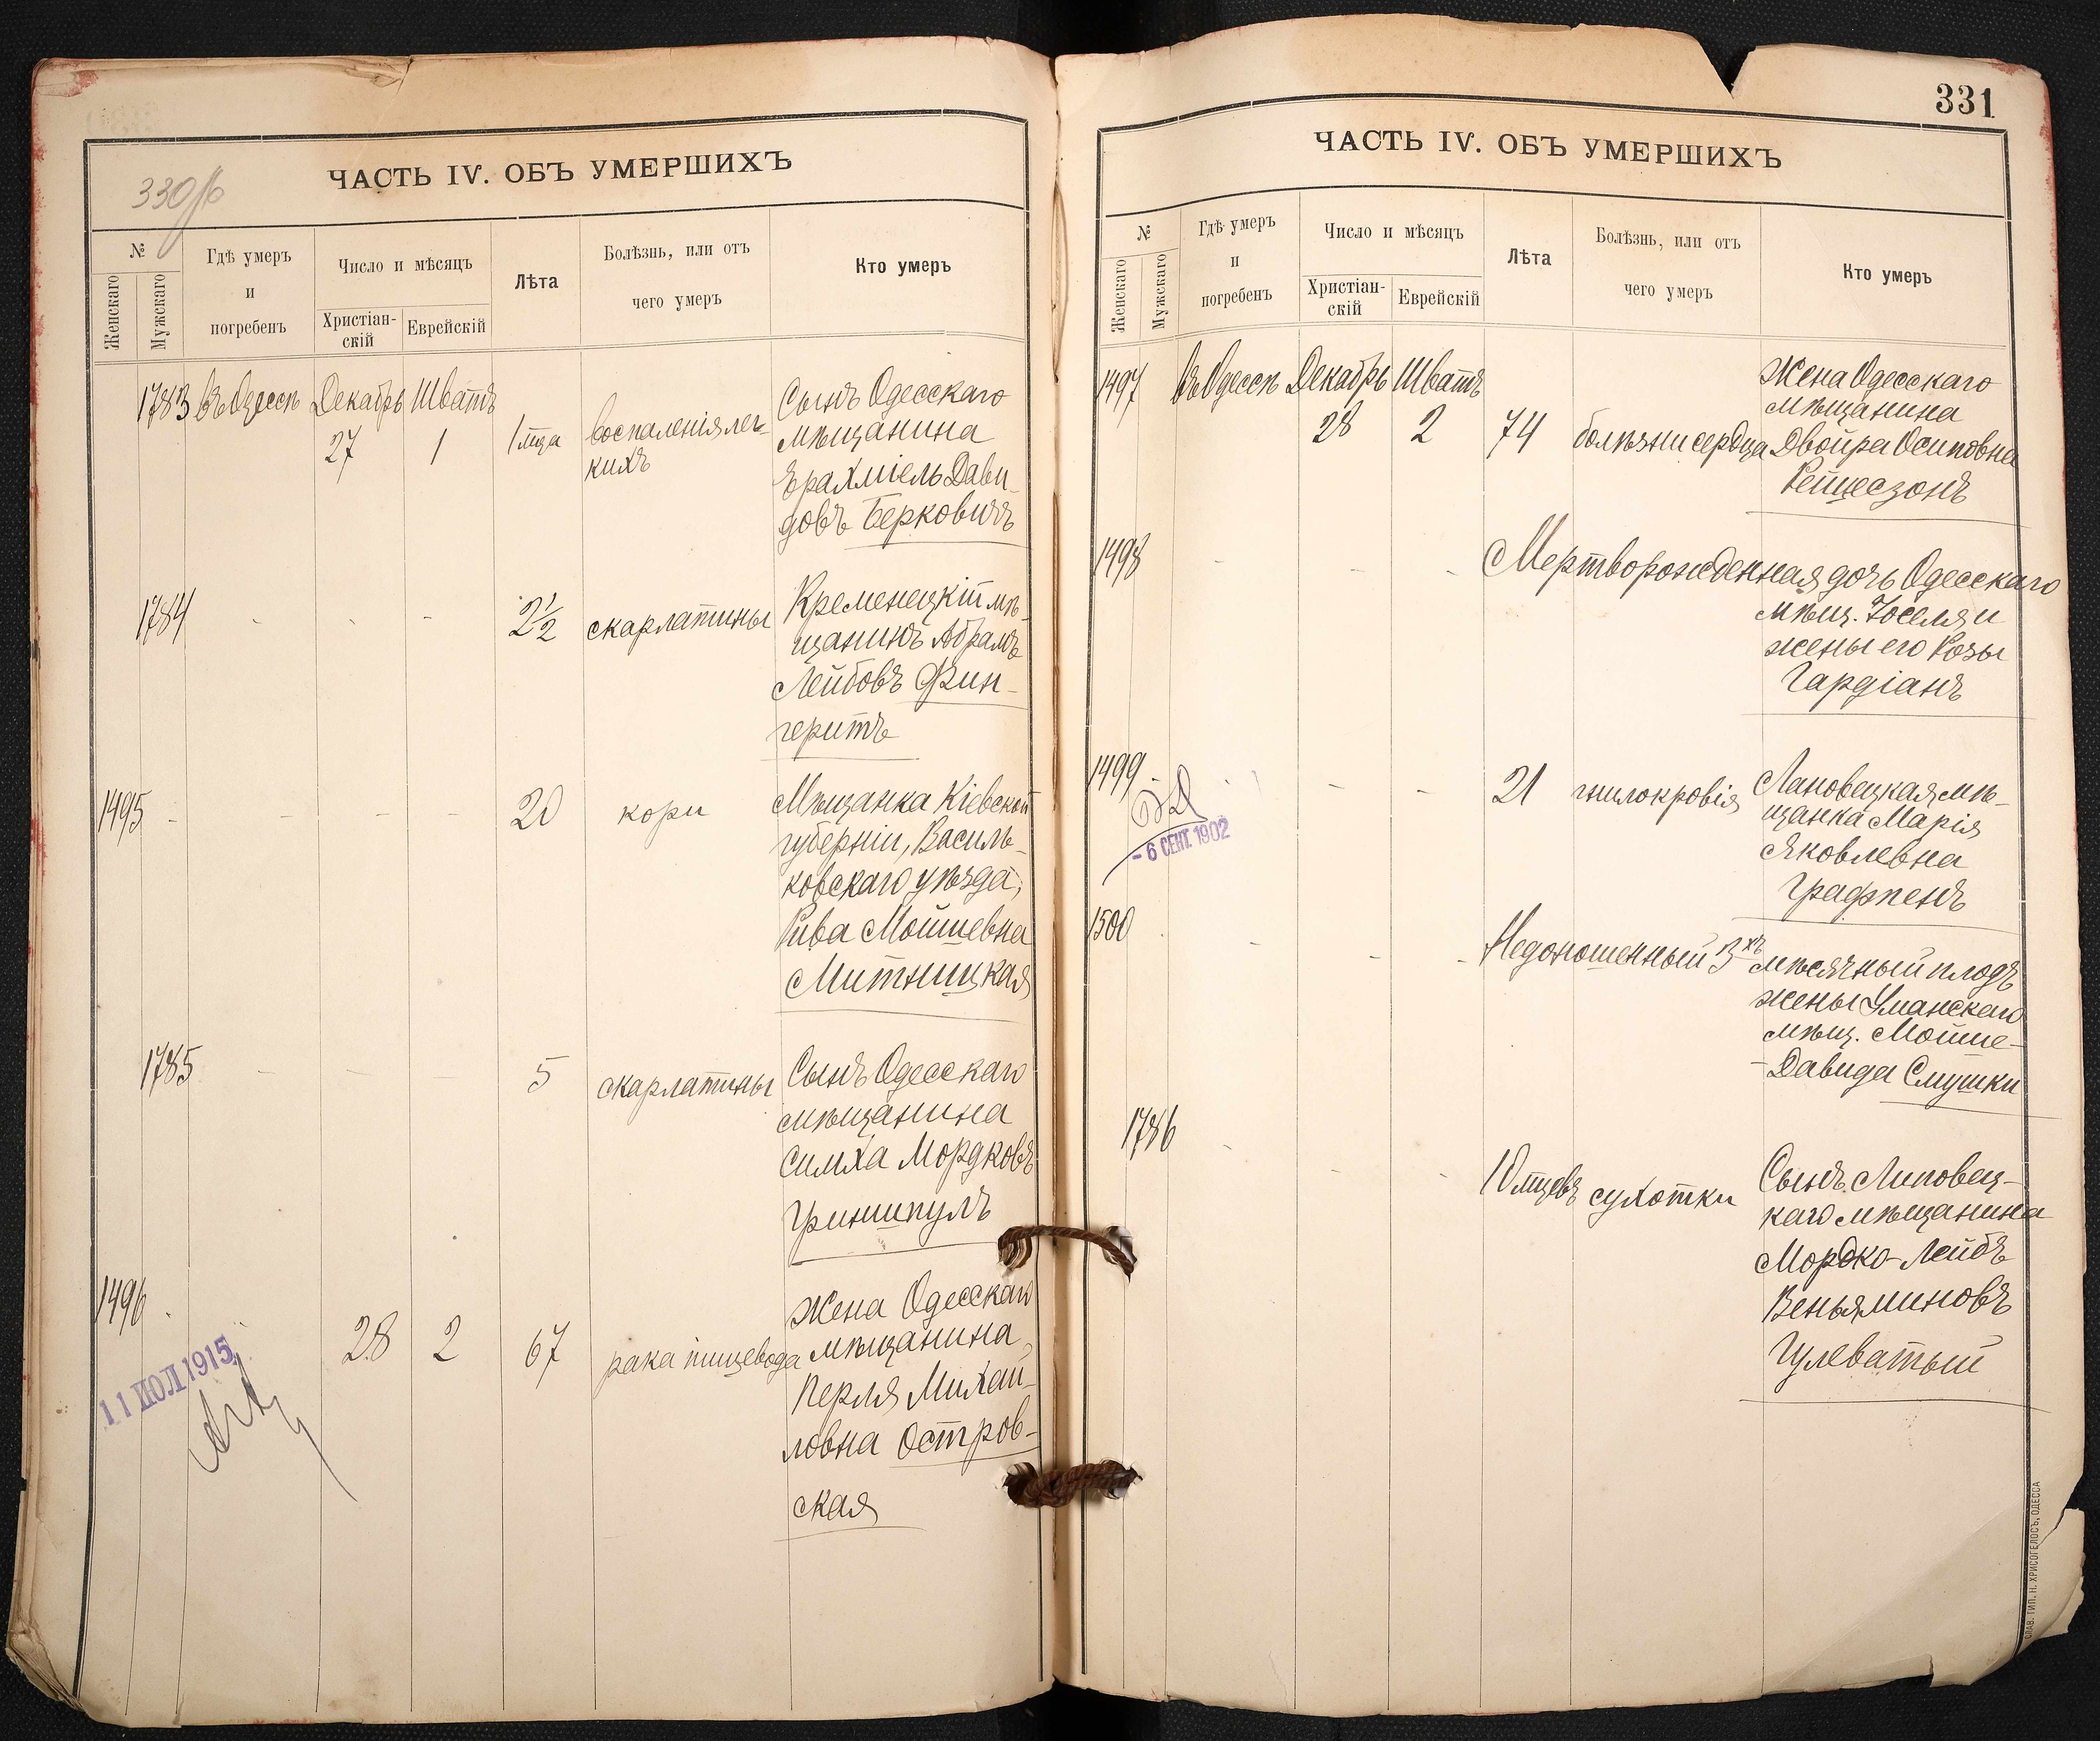 330об
ЧАСТЬ IV. ОБЪ УМЕРШИХЪ
№
Женскаго
Мужскаго
Гдѣ умеръ
и
погребенъ
Число и мѣсяцъ
Христіан-
скій
Еврейскій
Лѣта
Болѣзнь, или отъ
чего умеръ
Кто умеръ
1783 въ Одессѣ Декабрь Шватъ
27 1 1 мца воспаленія лег-
кихъ
Сынъ Одесскаго
мѣщанина
Ерахміель Дави-
довъ Берковичъ
1784 - - - 2½ скарлатины
Кременецкій мѣ-
щанинъ Абрамъ
Лейбовъ Фин-
геритъ
1495 - - - - 20 кори
Мѣщанка Кіевской
губерніи, Василь-
ковскаго уѣзда,
Рива Мойшевна
Митницкая
1785 - - - 5 скарлатины
Сынъ Одесскаго
мѣщанина
Симха Мордковъ
Гриншпулъ
1496 28 2 67 рака пищевода
Жена Одесскаго
мѣщанина,
Перля Михай-
ловна Остров-
ская
11 ІЮЛ 1915
331
ЧАСТЬ IV. ОБЪ УМЕРШИХЪ
№
Женскаго
Мужскаго
Гдѣ умеръ
и
погребенъ
Число и мѣсяцъ
Христіан-
скій
Еврейскій
Лѣта
Болѣзнь, или отъ
чего умеръ
Кто умеръ
1497 въ Одессѣ Декабрь Шватъ
28 2 74 болѣзни сердца
Жена Одесскаго
мѣщанина
Двойра Осиповна
Рейцесзонъ
1498 - - - Мертворожденная дочь Одесскаго
мѣщ. Іоселя и
жены его Розы
Гардіанъ
1499 - - - 21 гнилокровія
Лановецкая мѣ-
щанка Марія
Яковлевна
Графпенъ
- 6 СЕНТ. 1902
1500 - - - Недоношенный 3хъ мѣсячный плодъ
жены Уманскаго
мѣщ. Мошне-
-Давида Слушки
1786 - - - 10 мцевъ сухотки
Сынъ Липовец-
каго мѣщанина
Мордко-Лейбъ
Веньяминовъ
Гулеватый
СЛАВ. ТИП. Н. ХРИСОГЕЛОСЪ, ОДЕССА